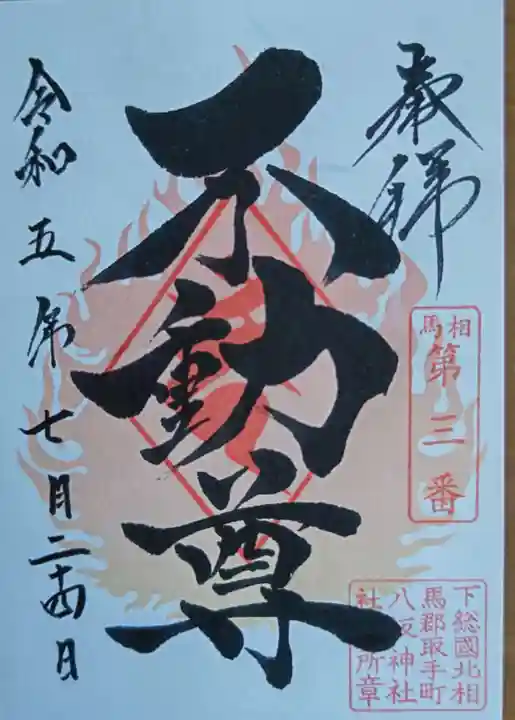 奉拝
相馬
第三番
不動尊
下総國北相
馬郡取手町
八坂神社
社務所章
令和五年七月二十四日